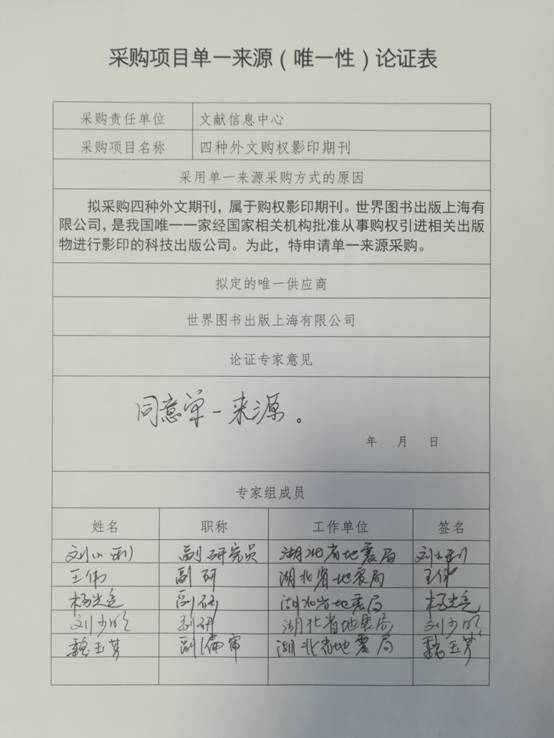 采购项目单一来源（唯一性）论证表
采购责任单位 文献信息中心
采购项目名称 四种外文购权影印期刊
采用单一来源采购方式的原因
拟采购四种外文期刊，属于购权影印期刊。世界图书出版上海有
限公司，是我国唯一一家经国家相关机构批准从事购权引进相关出版
物进行影印的科技出版公司。为此，特申请单一来源采购。
拟定的唯一供应商
世界图书出版上海有限公司
论证专家意见
同意单一来源。
年 月 日
专家组成员
姓名 职称 工作单位 签名
副研究员 湖北省地震局
王伟 副研 湖北省地震局 王伟
副研 湖北省地震局
刘少明 副研 湖北省地震局 刘少明
魏玉芳 副编审 湖北省地震局 魏玉芳